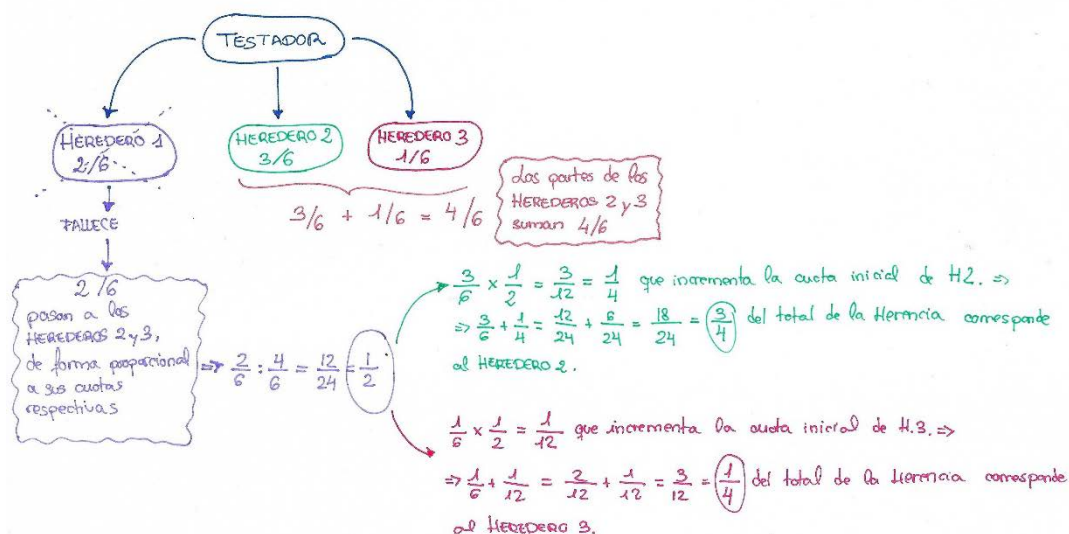 TESTADOR
HEREDERO 1
2/6
HEREDERO 2
3/6
HEREDERO 3
1/6
FALLECE
3/6 + 1/6 = 4/6
Las partes de los
HEREDEROS 2 y 3
suman 4/6
2/6
pasan a los
HEREDEROS 2 y 3,
de forma proporcional
a sus cuotas
respectivas
⇒ 2/6 : 4/6 = 12/24 = 1/2
3/6 x 1/2 = 3/12 = 1/4 que incrementa la cuota inicial de H2. ⇒
⇒ 3/6 + 1/4 = 12/24 + 6/24 = 18/24 = 3/4 del total de la Herencia corresponde
al HEREDERO 2.
1/6 x 1/2 = 1/12 que incrementa la cuota inicial de H.3. ⇒
⇒ 1/6 + 1/12 = 2/12 + 1/12 = 3/12 = 1/4 del total de la Herencia corresponde
al HEREDERO 3.